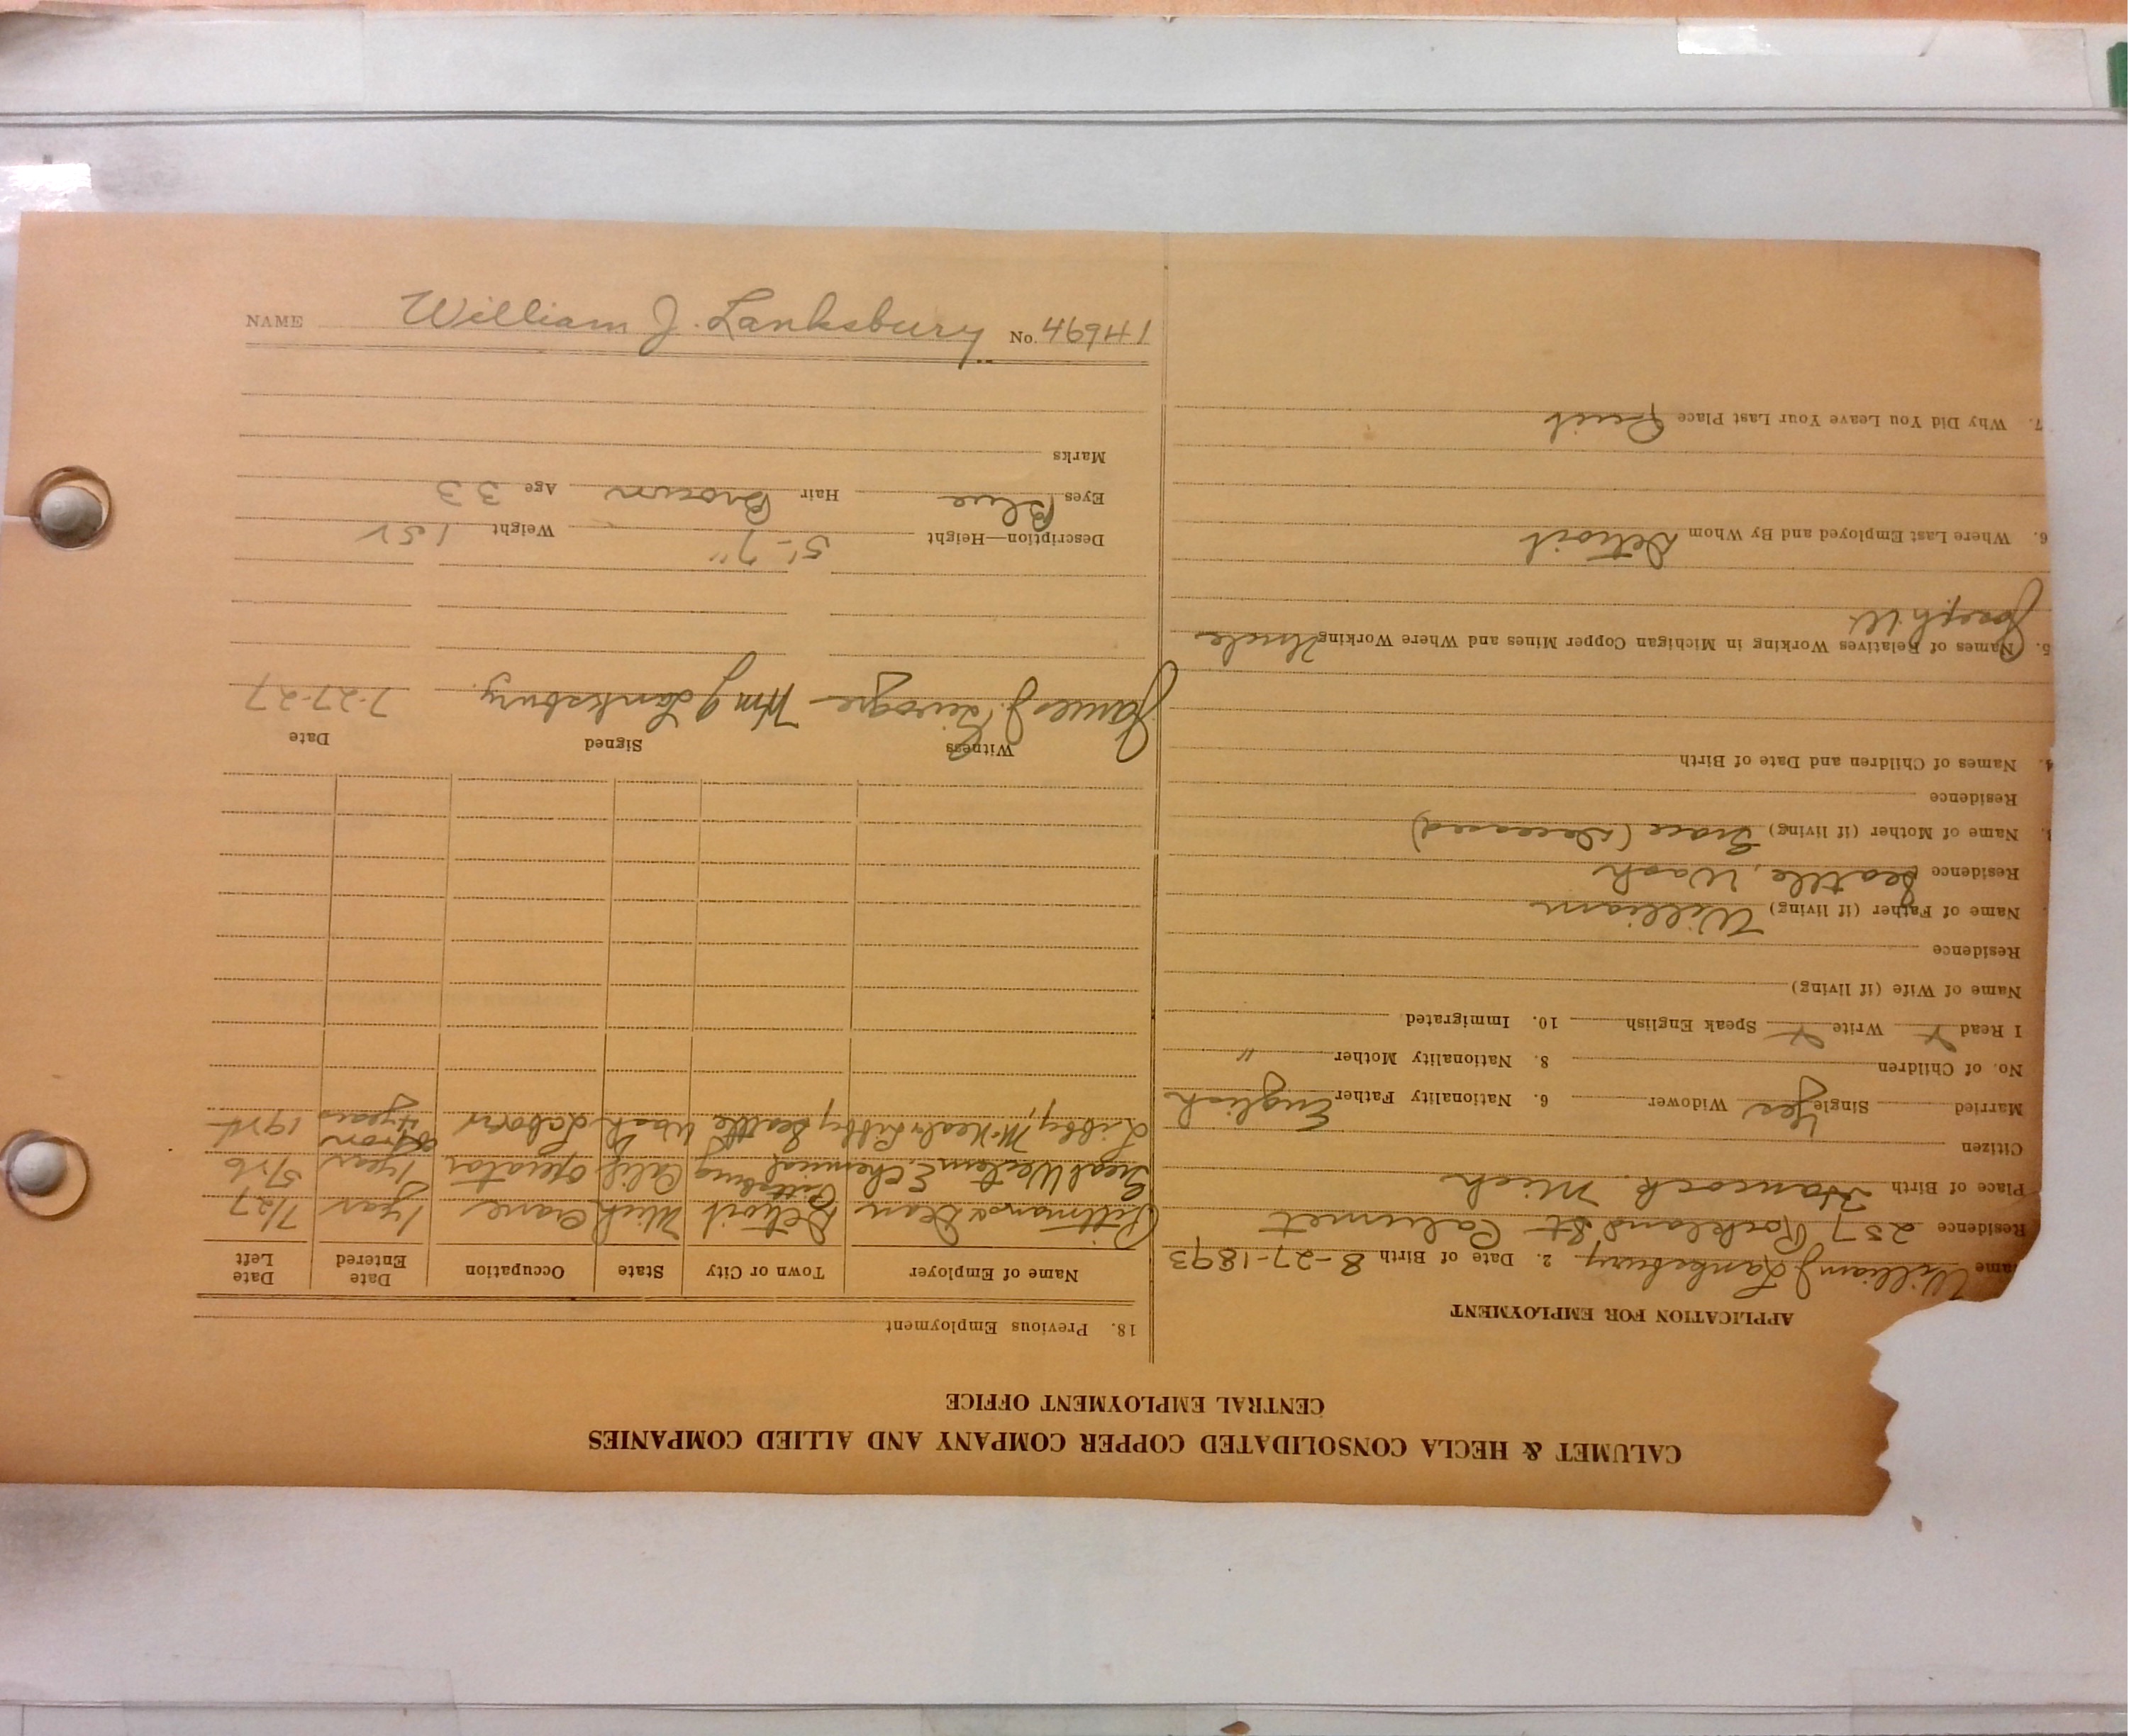 CALUMET & HECLA CONSOLIDATED COPPER COMPANY AND ALLIED COMPANIES
CENTRAL EMPLOYMENT OFFICE
APPLICATION FOR EMPLOYMENT
ame William J Lanksbury 2. Date of Birth 8-27-1893
Residence 257 Rockland St Calumet
Place of Birth Hancock. Mich
Citizen
Married Single Yes Widower 6. Nationality Father English
No. of Children 8. Nationality Mother "
I Read x Write x Speak English 10. Immigrated
Name of Wife (if living)
Residence
Name of Father (if living) William
Residence Seattle, Wash
Name of Mother (if living) Grace (Deceased)
Residence
4. Names of Children and Date of Birth
5. Names of Relatives Working in Michigan Copper Mines and Where Working Uncle
Joseph W
6. Where Last Employed and By Whom Detroit
7. Why Did You Leave Your Last Place Quit
18. Previous Employment
Name of Employer Town or City State Occupation Date Entered Date Left
Pittman & Dean Detroit Mich Crane 1 year 7/27
Great Western E. Chemical Pittsburg Calif Operator 1 year 5/26
Libby, McNeal & Libby Seattle Wash Laborer 4 years
Witness Signed Date
James J. Wm J Lanksbury. 7-27-27
Description—Height 5'-7" Weight 152
Eyes Blue Hair Brown Age 33
Marks
NAME William J. Lanksbury No. 46941